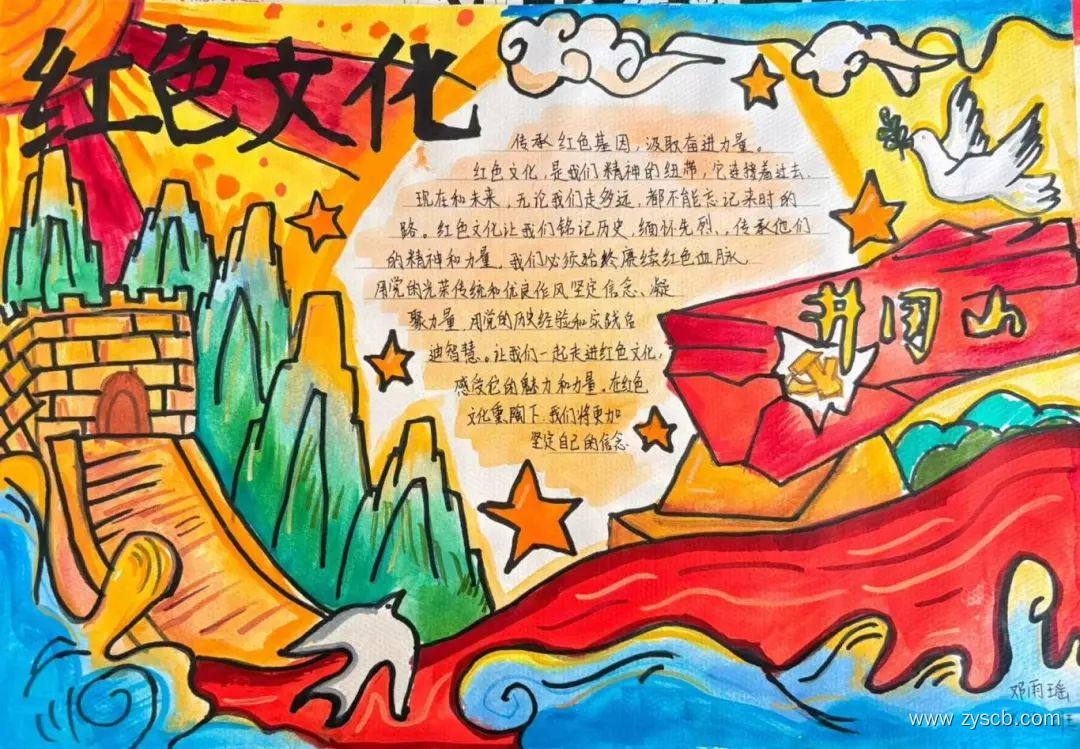 红色文化
传承红色基因，汲取奋进力量。
红色文化，是我们精神的纽带，它连接着过去、
现在和未来，无论我们走多远，都不能忘记来时的
路。红色文化让我们铭记历史，缅怀先烈，传承他们
的精神和力量，我们必须始终赓续红色血脉
用党的光荣传统和优良作风坚定信念、凝
聚力量，用党的历史经验和实践启
迪智慧。让我们一起走进红色文化，
感受它的魅力和力量。在红色
文化熏陶下，我们将更加
坚定自己的信念
井冈山
邓雨瑶
www.zyscb.com